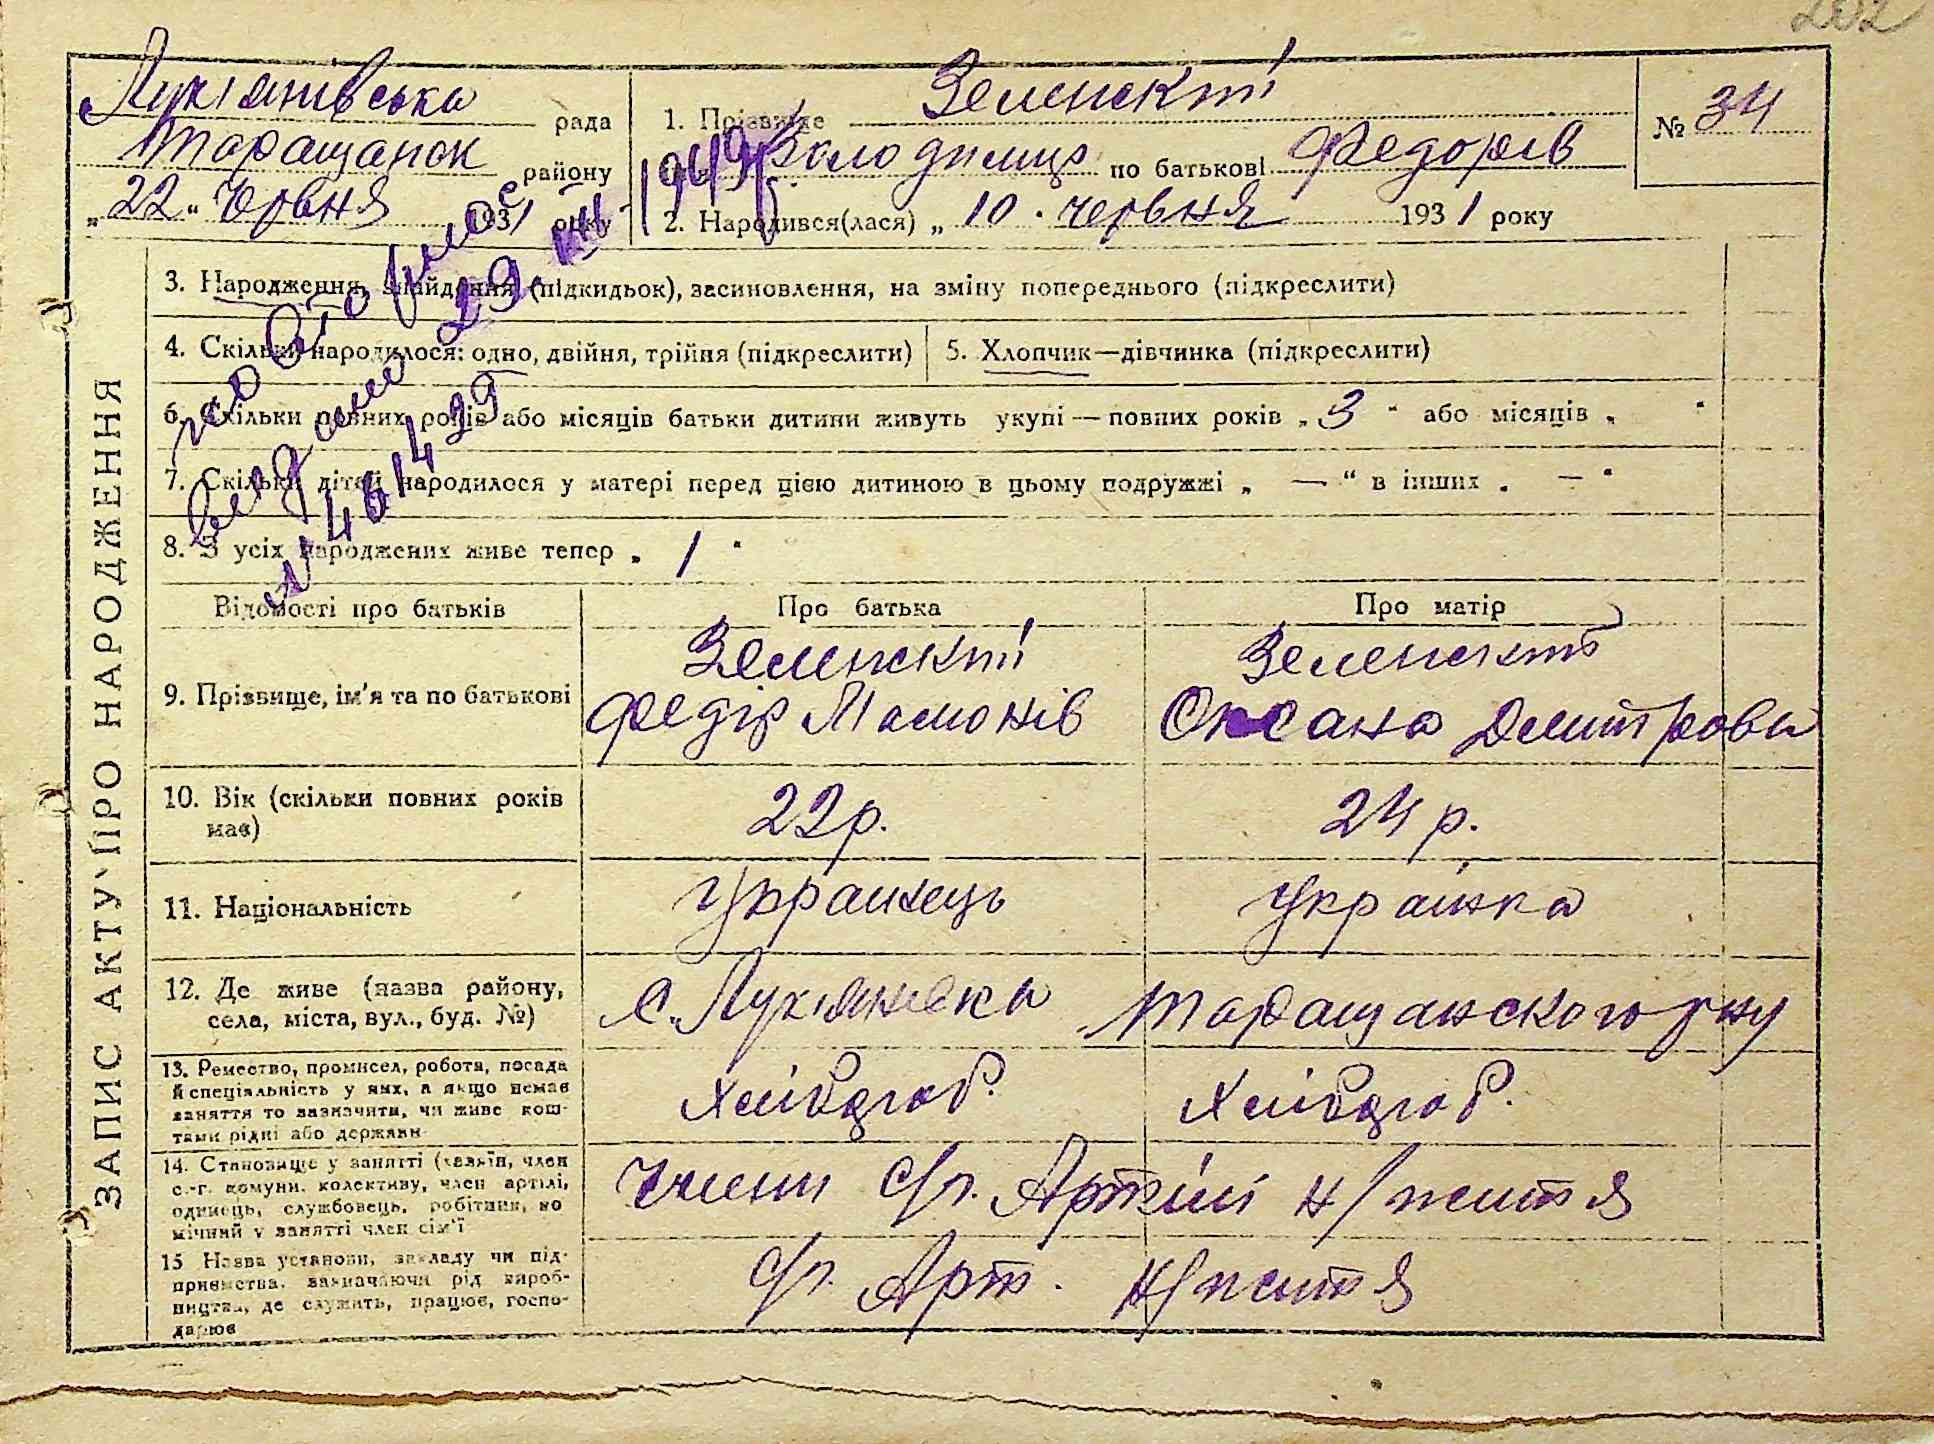 202
Лук'янівська рада
Таращанськ району
„22" Червня 1931 року
1. Прізвище Зеленский
ім'я Володимир по батькові Федорів
2. Народився(лася) „10. червня 1931 року
№ 34
ЗАПИС АКТУ ПРО НАРОДЖЕННЯ
3. Народження, знайдення (підкидьок), засиновлення, на зміну попереднього (підкреслити)
4. Скільки народилося: одно, двійня, трійня (підкреслити)
5. Хлопчик—дівчинка (підкреслити)
6. Скільки повних років або місяців батьки дитини живуть укупі — повних років „3" або місяців „ "
7. Скільки дітей народилося у матері перед цією дитиною в цьому подружжі „ — " в інших „ — "
8. З усіх народжених живе тепер „ 1 "
29 1949 р.
№ 461439
Відомості про батьків
Про батька
Про матір
9. Прізвище, ім'я та по батькові
Зеленский
Федір Мамонів
Зеленск
Оксана Дмитрова
10. Вік (скільки повних років має)
22 р.
24 р.
11. Національність
Українець
Українка
12. Де живе (назва району, села, міста, вул., буд. №)
с. Лук'янівка Таращанського р-ну
13. Ремество, промисел, робота, посада й спеціяльність у них, а якщо немає заняття то зазначити, чи живе коштами рідні або держави
Хлібороб.
Хлібороб.
14. Становище у занятті (хазяїн, член с.-г. комуни, колективу, член артілі, одинець, службовець, робітник, помічний у занятті член сім'ї
Члени с/г. Артілі н/життя
15 Назва установи, закладу чи підприємства, зазначаючи рід виробництва, де служить, працює, господарює
с/г. Арт. н/життя